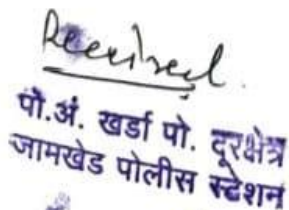 Received.
पो.अं. खर्डा पो. दूरक्षेत्र
जामखेड पोलीस स्टेशन